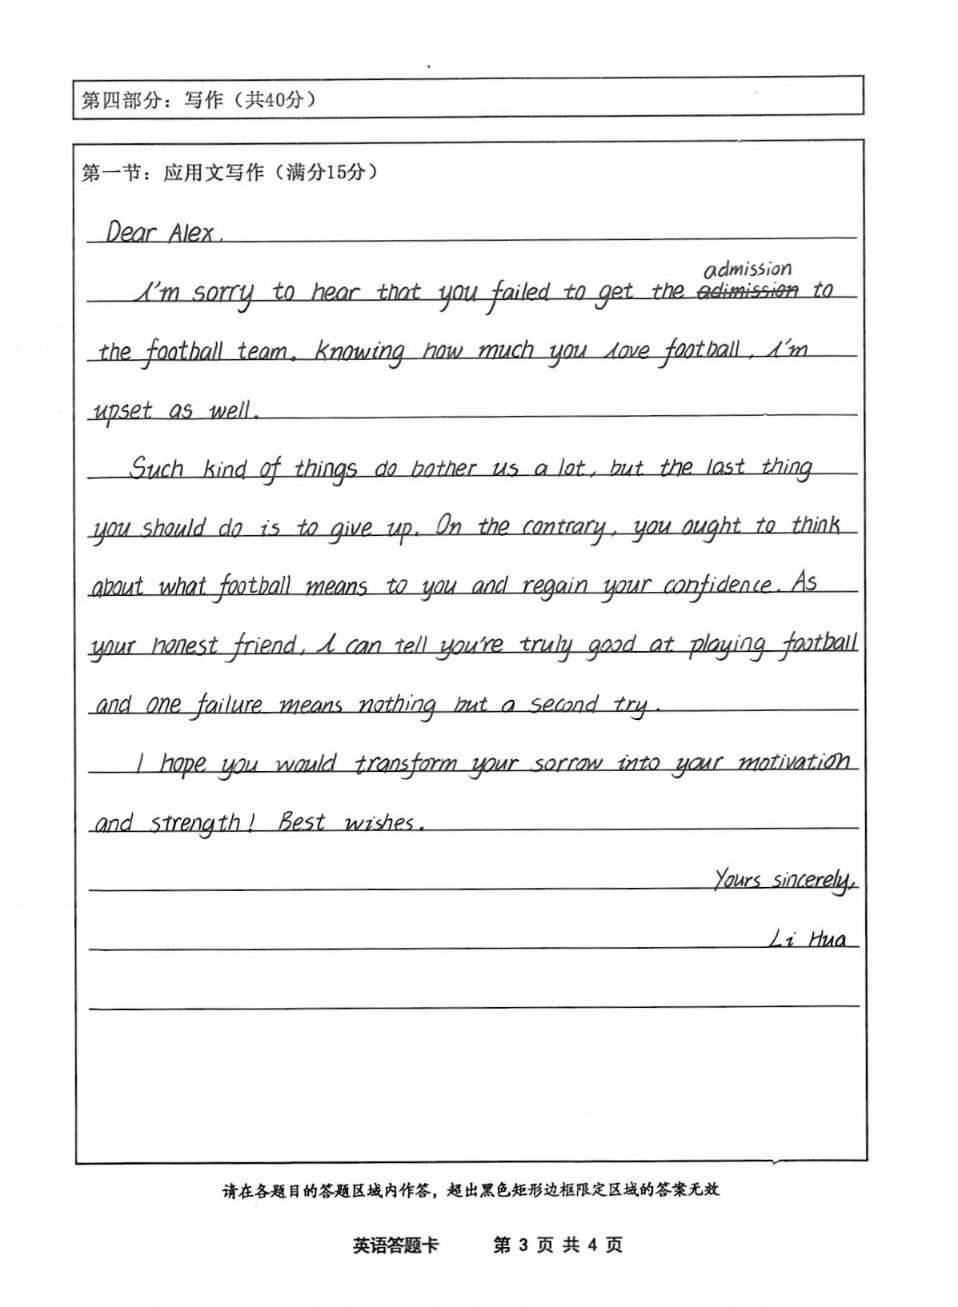 第四部分：写作（共40分）
第一节：应用文写作（满分15分）
Dear Alex,
I'm sorry to hear that you failed to get the adimission admission to
the football team. Knowing how much you love football, I'm
upset as well.
Such kind of things do bother us a lot, but the last thing
you should do is to give up. On the contrary, you ought to think
about what football means to you and regain your confidence. As
your honest friend, I can tell you're truly good at playing football
and one failure means nothing but a second try.
I hope you would transform your sorrow into your motivation
and strength! Best wishes.
Yours sincerely,
Li Hua
请在各题目的答题区域内作答，超出黑色矩形边框限定区域的答案无效
英语答题卡 第 3 页 共 4 页